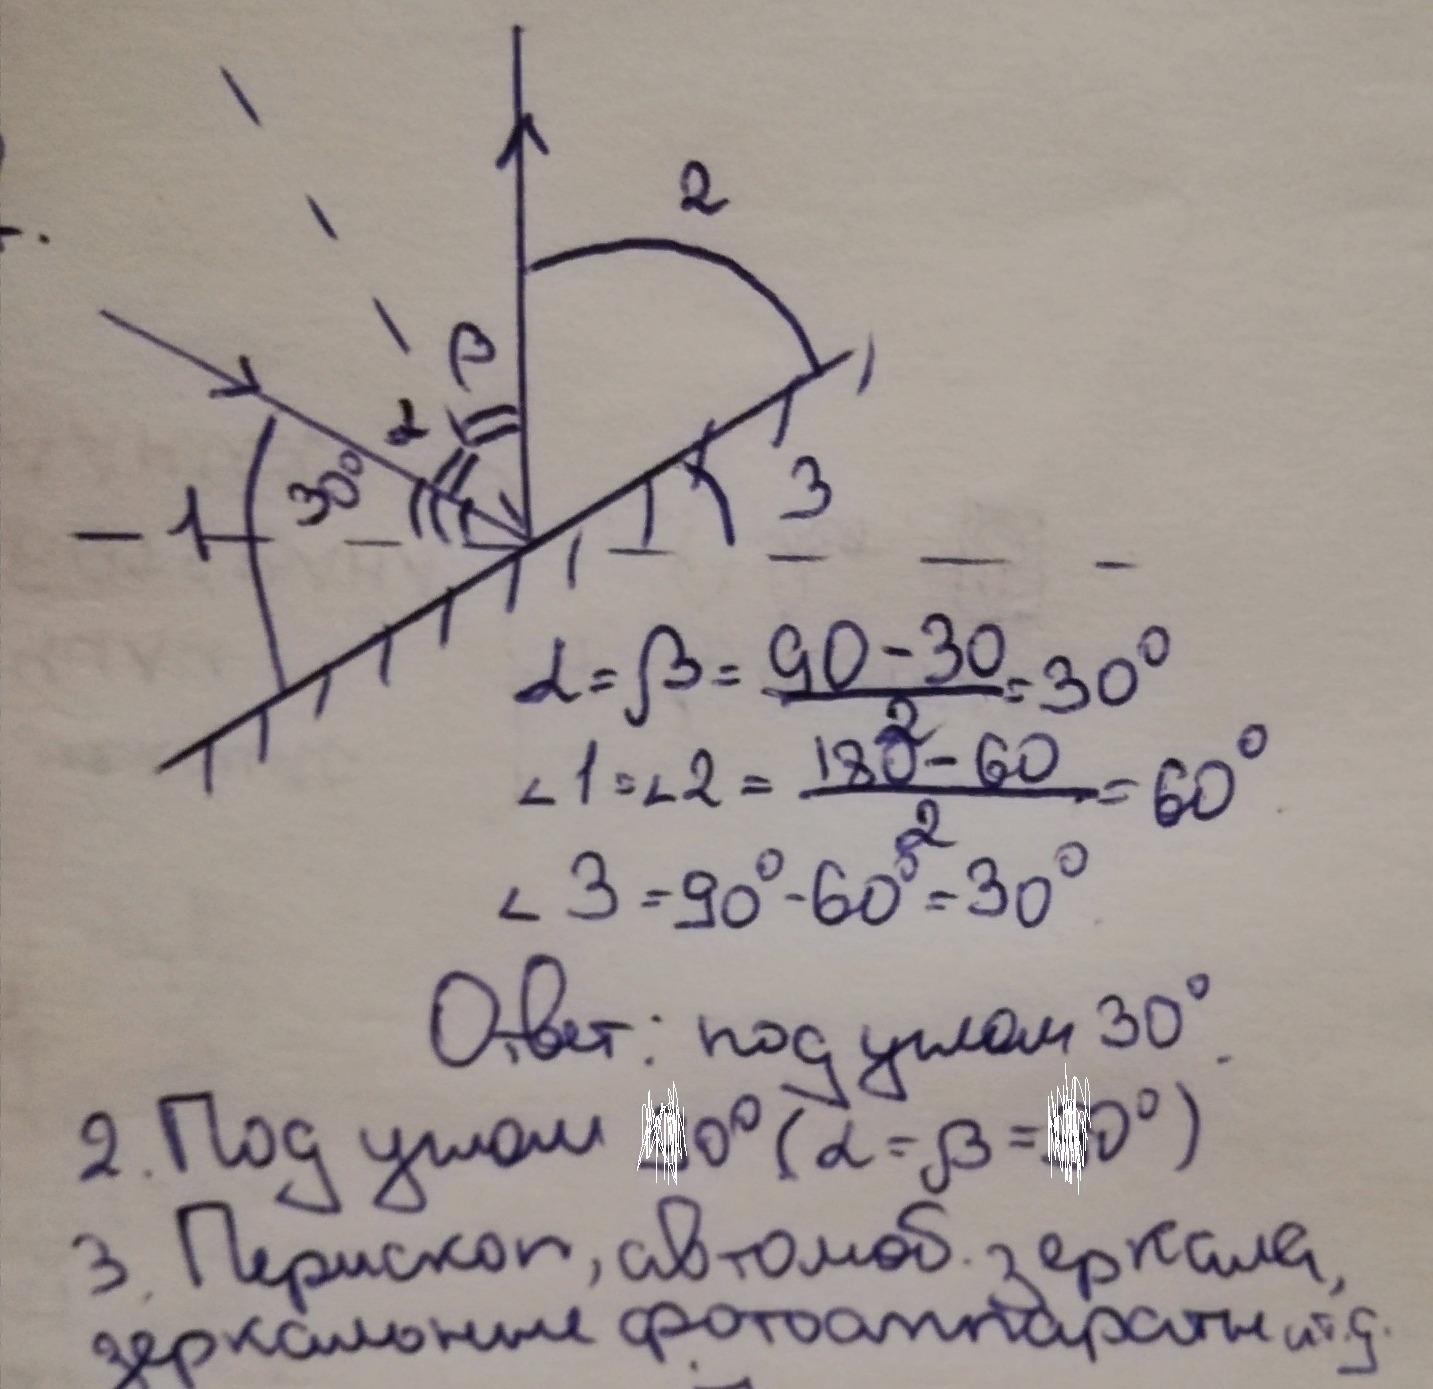 2
β
α
30°
1
3
α = β = 90 - 30 / 2 = 30°
∠1 = ∠2 = 180 - 60 / 2 = 60°
∠3 = 90° - 60° = 30°
Ответ: под углом 30°.
2. Под углом 0° (α = β = 0°)
3. Перископ, автомоб. зеркала,
зеркальные фотоаппараты и т.д.